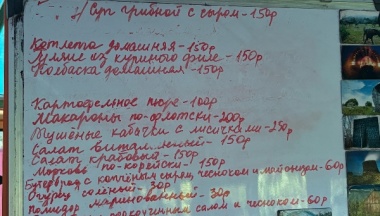 Суп грибной с сыром - 150р
Котлета домашняя - 150р
из куриного филе - 150р
Колбаска домашняя - 150р
Картофельное пюре - 100р
Макароны по-флотски - 200р
Тушёные кабачки с лисичками - 250р
Салат витаминный - 150р
Салат крабовый - 150р
Морковь по-корейски - 150р
Бутерброд с копчёным сыром, чесноком и майонезом - 60р
Огурец солёный - 30р
Помидор маринованный - 30р
салом и чесноком - 60р